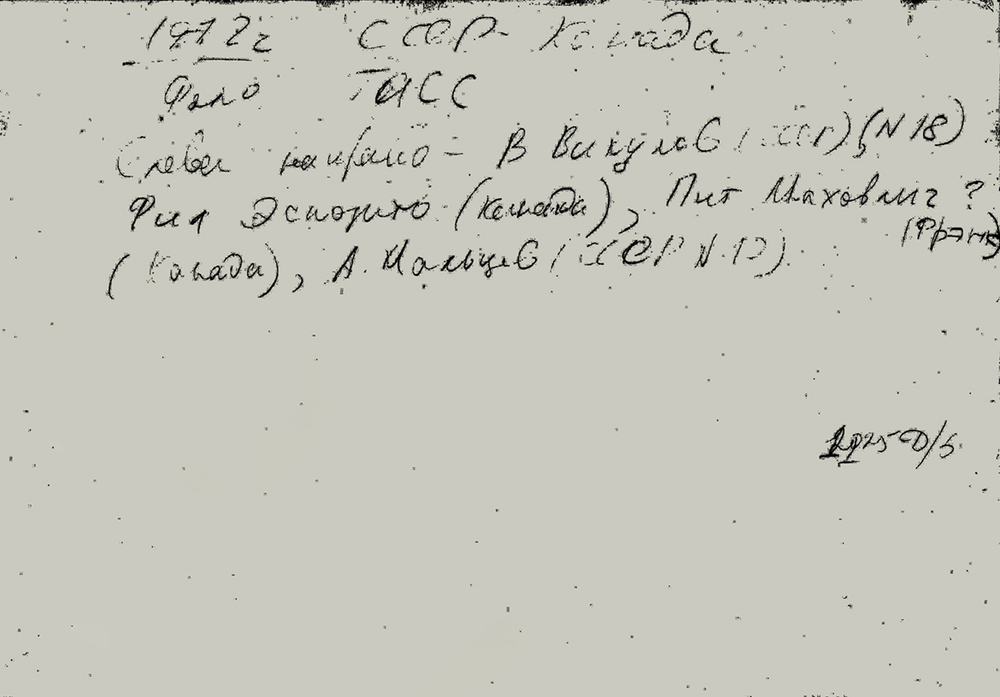 1972г СССР - Канада
Фото ТАСС
Слева направо - В Викулов (СССР), (N 18)
Фил Эспозито (Канада), Пит Маховлич ?
(Фрэнк)
(Канада), А. Мальцев (СССР N.10)